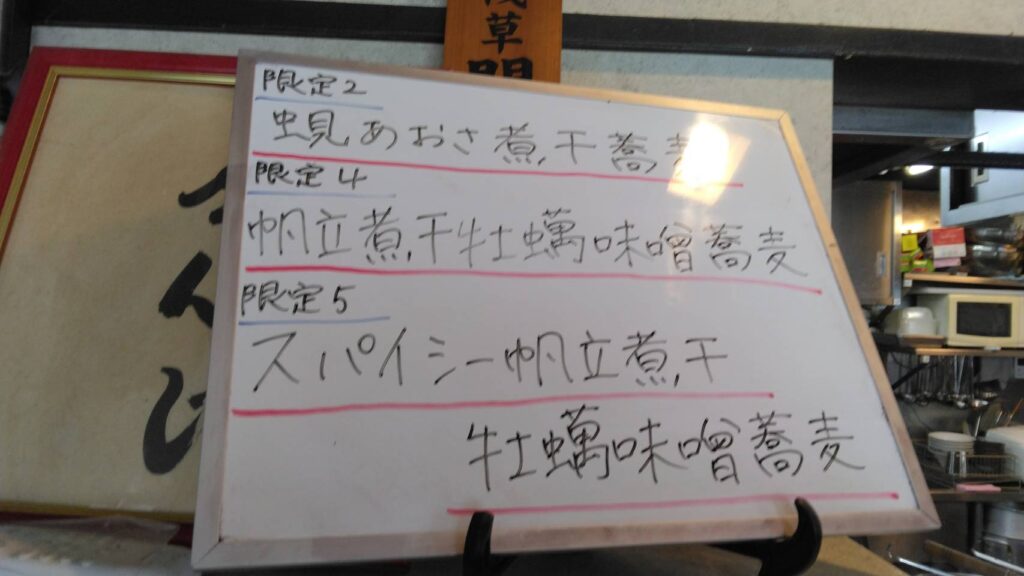 浅草
限定2
蜆あおさ煮干蕎麦
限定4
帆立煮干牡蠣味噌蕎麦
限定5
スパイシー帆立煮干
牡蠣味噌蕎麦